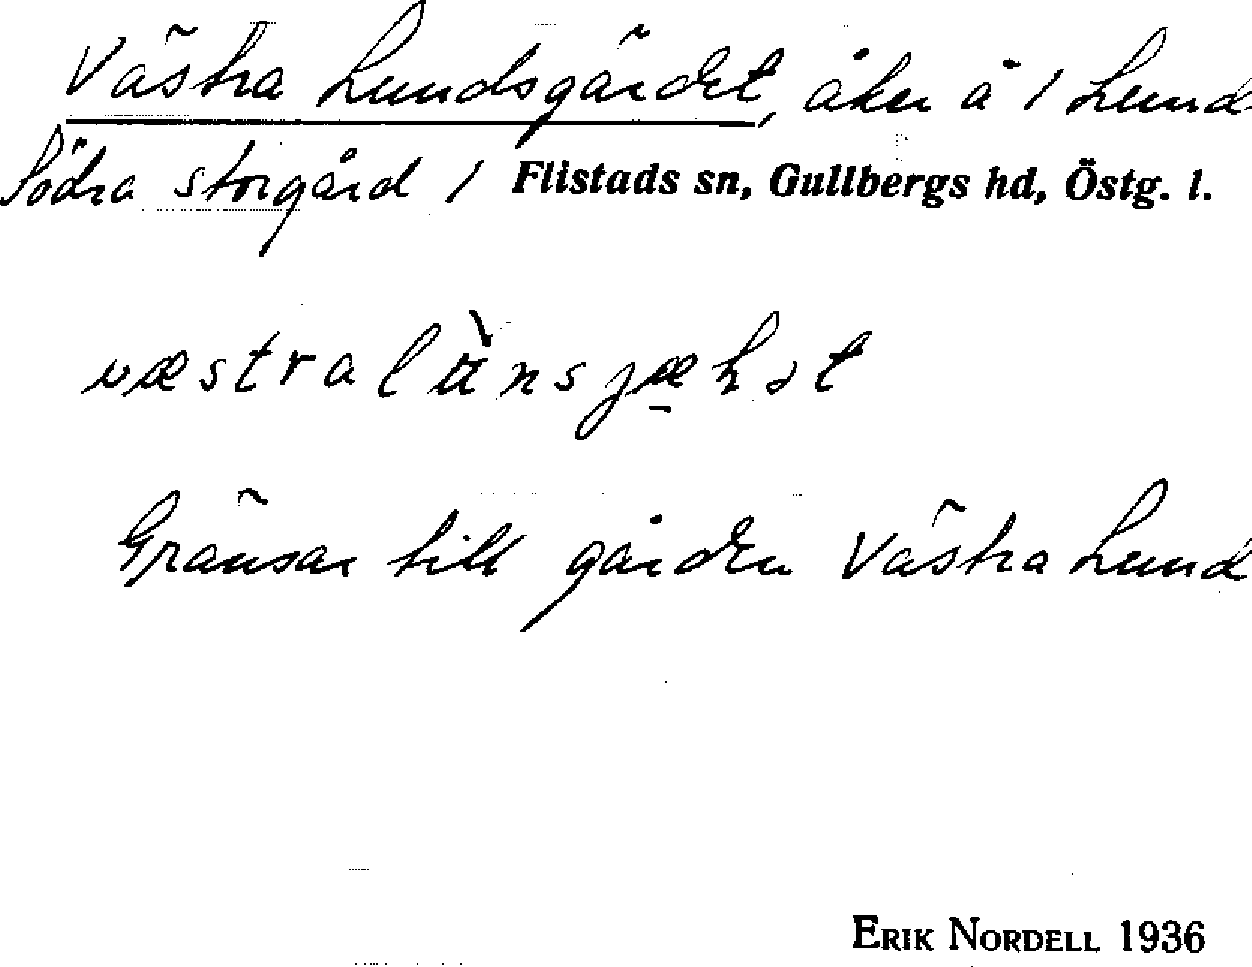 Västra Lundsgärdet, åker å 1 Lund
Södra storgård 1 Flistads sn, Gullbergs hd, Östg. l.
Gränsar till gården Västra Lund
ERIK NORDELL 1936